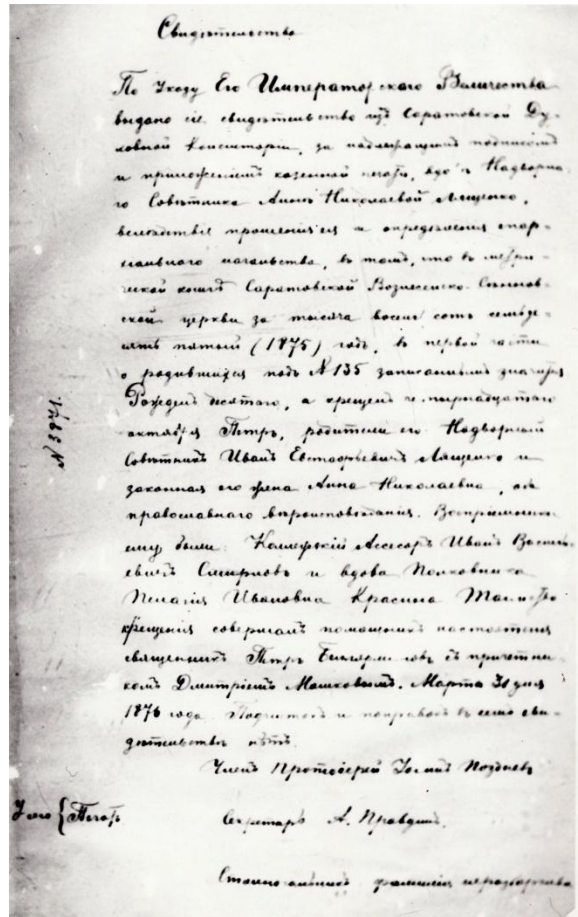 Свидѣтельство
По Указу Его Императорскаго Величества
выдано сіе свидѣтельство изъ Саратовской Ду-
ховной Консисторіи, за надлежащимъ подписомъ
и приложеніемъ казенной печати, вдовѣ Надворна-
го Совѣтника Аннѣ Николаевой Лященко,
вслѣдствіе прошенія ея и опредѣленія епар-
хіальнаго начальства, въ томъ, что въ метри-
ческой книгѣ Саратовской Вознесенско-Сѣнновс-
кой церкви за тысяча восемь сотъ семьде-
сятъ пятый (1875) годъ, въ первой части
о родившихся подъ № 135 записаннымъ значится
Рожденъ девятаго, а крещенъ четырнадцатаго
октября Петръ, родители его: Надворный
Совѣтникъ Иванъ Евстафьевичъ Лященко и
законная его жена Анна Николаевна, оба
православнаго вѣроисповѣданія. Воспріемники
ему были: Коллежскій Ассесоръ Иванъ Василь-
евичъ Смирновъ и вдова Полковника
Пелагія Ивановна Красина Таинство
крещенія совершалъ помощникъ настоятеля
священникъ Петръ съ причетни-
комъ Дмитріемъ Мошковымъ. Марта 30 дня
1876 года. Подчистокъ и поправокъ въ семъ сви-
дѣтельствѣ нѣтъ.
Членъ Протоіерей Позднев
У сего { Печать
Секретарь А. Правдинъ.
Столоначальникъ фамилія неразборчива
№ 3971.